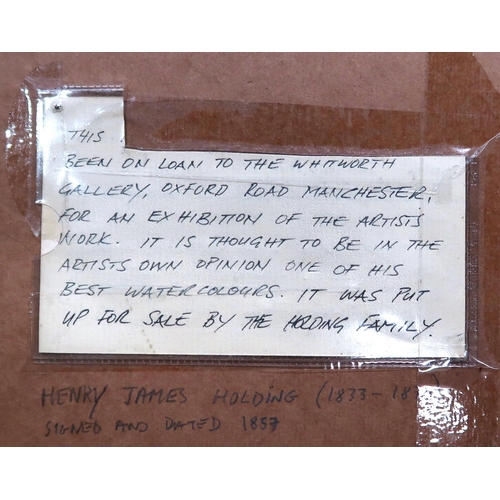 THIS
BEEN ON LOAN TO THE WHITWORTH
GALLERY, OXFORD ROAD MANCHESTER,
FOR AN EXHIBITION OF THE ARTISTS
WORK. IT IS THOUGHT TO BE IN THE
ARTISTS OWN OPINION ONE OF HIS
BEST WATERCOLOURS. IT WAS PUT
UP FOR SALE BY THE HOLDING FAMILY.
HENRY JAMES HOLDING (1833-
SIGNED AND DATED 1857